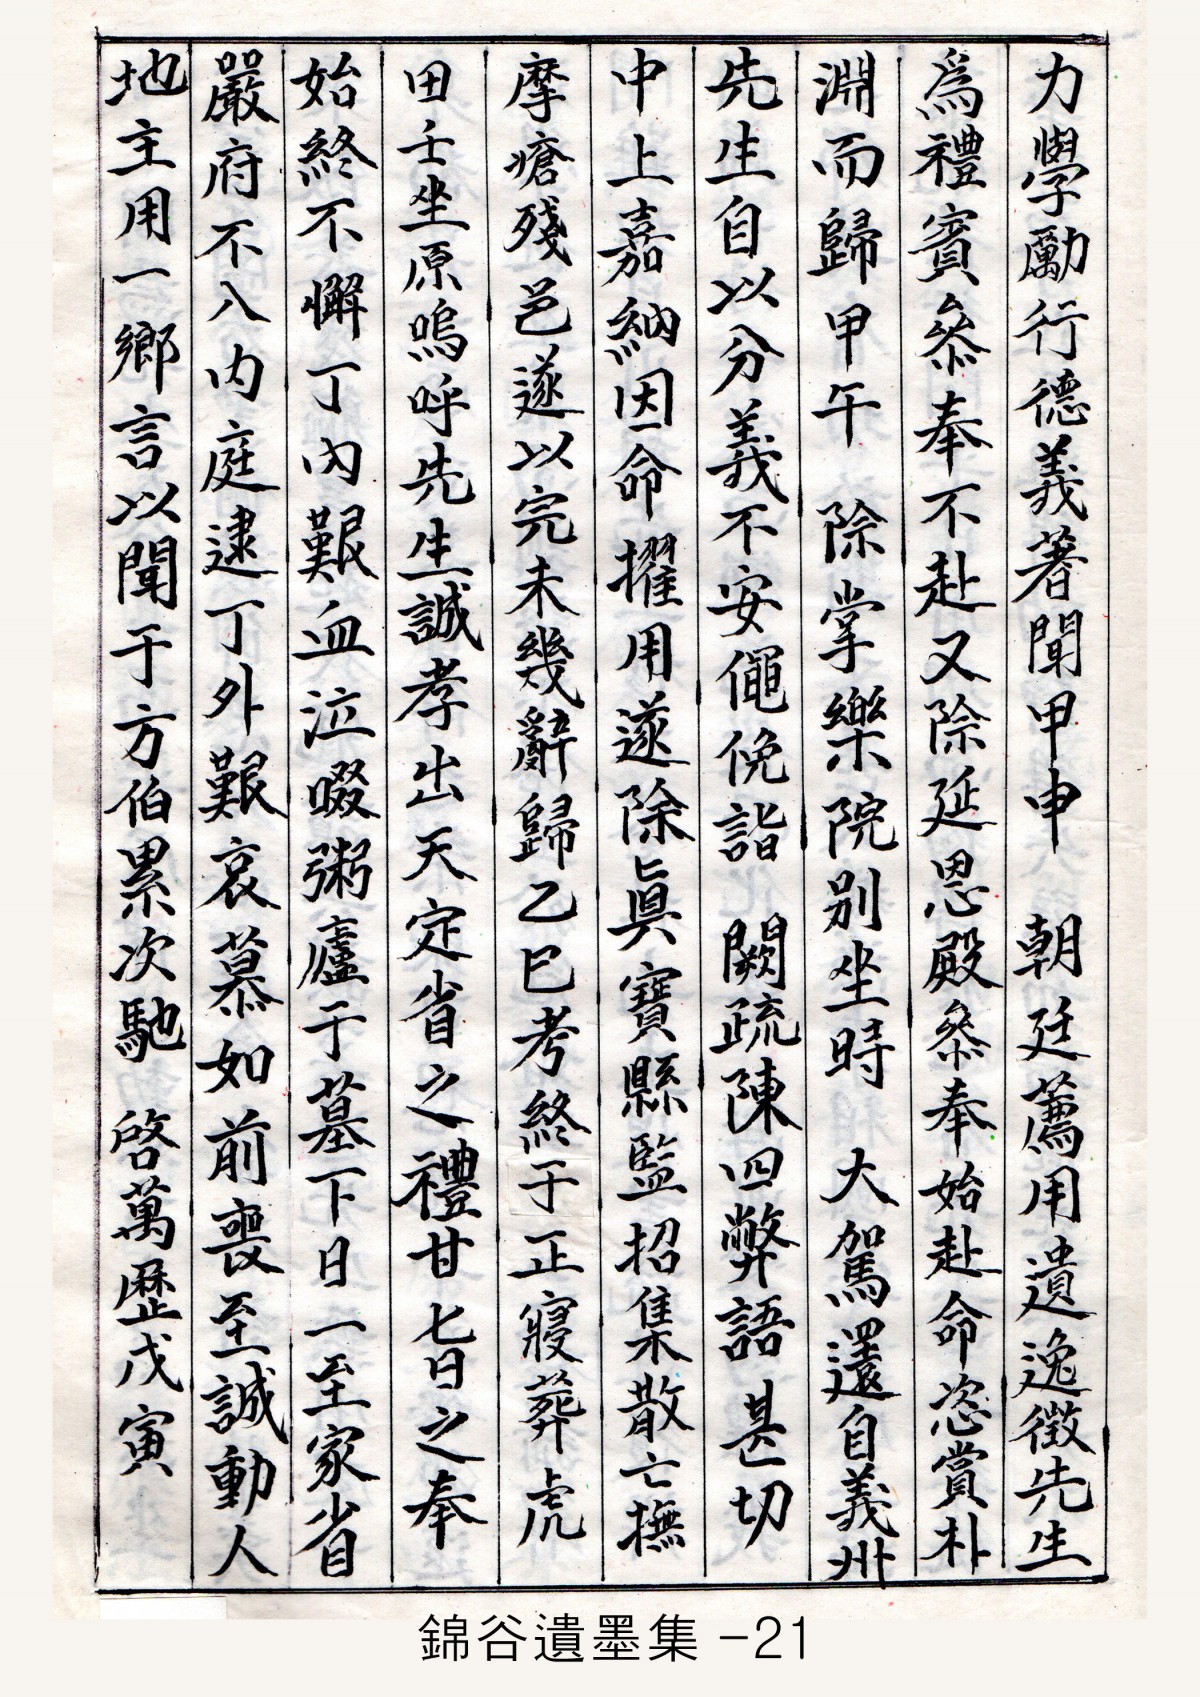 力學勵行德義著聞甲申　朝廷薦用遺逸徵先生
爲禮賓叅奉不赴又除延恩殿叅奉始赴命恣賞朴
淵而歸甲午　除掌樂院別坐時　大駕還自義州
先生自以分義不安僶俛詣　闕疏陳四弊語甚切
中上嘉納因命擢用遂除眞寶縣監招集散亡撫
摩瘡殘邑遂以完未幾辭歸乙巳考終于正寢葬虎
田壬坐原嗚呼先生誠孝出天定省之禮甘七日之奉
始終不懈丁內艱血泣啜粥廬于墓下日一至家省
嚴府不入內庭逮丁外艱哀慕如前喪至誠動人
地主用一鄉言以聞于方伯累次馳　啓萬歷戊寅
錦谷遺墨集 -21